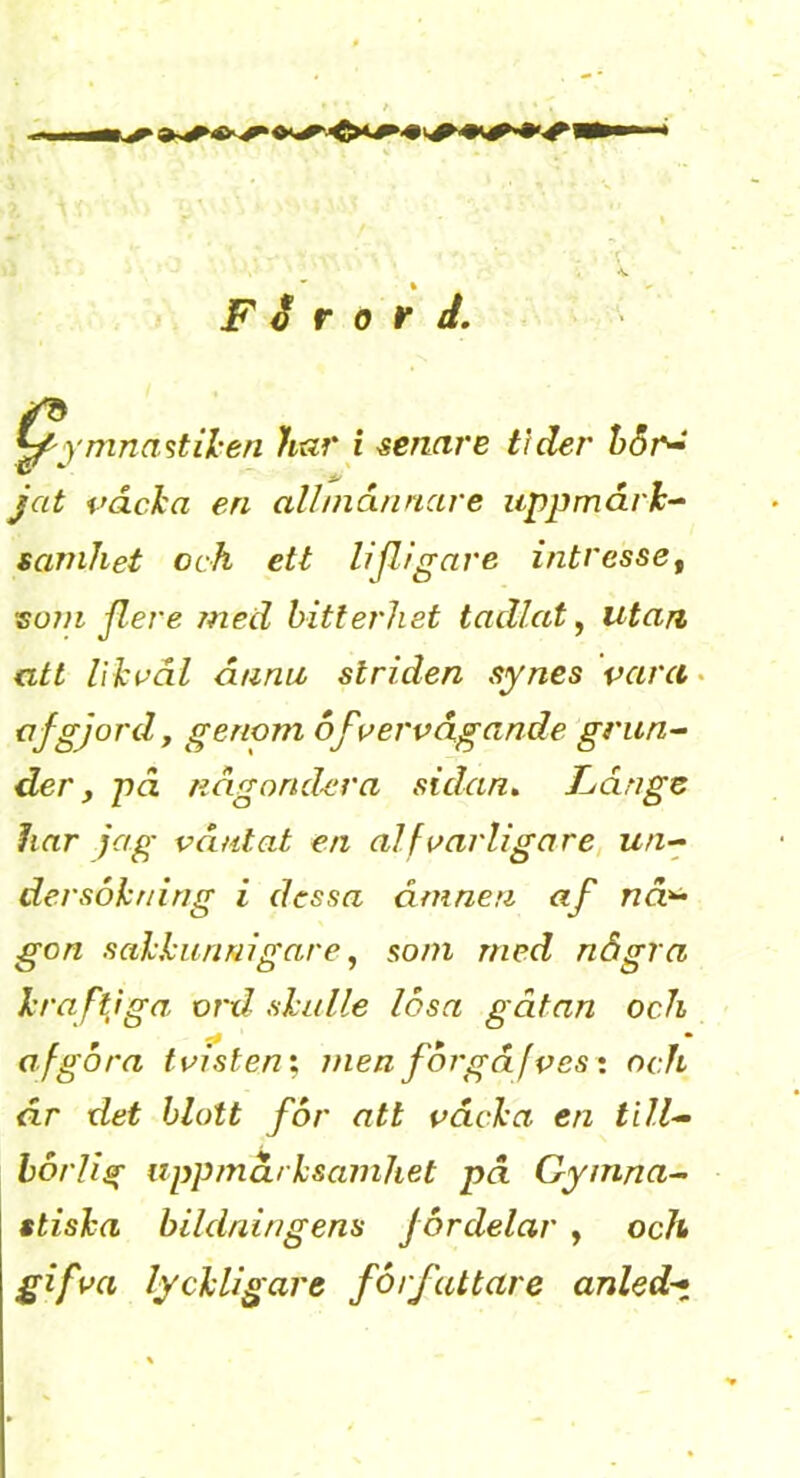 Förord.
Gymnastiken har i senare tider bör-
jat väcka en allmännare uppmärk-
samhet och ett lifligare intresse,
som flere med bitterhet tadlat, utan
att likväl ännu striden synes vara
afgjord, genom öfvervägande grun-
der, på någondera sidan. Länge
har jag väntat en alfvarligare un-
dersökning i dessa ämnen af nå-
gon sakkunnigare, som med några
kraftiga ord skulle lösa gåtan och
afgöra tvisten; men förgäfves: och
är det blott för att väcka en till-
börlig uppmärksamhet på Gymna-
stiska bildningens fördelar, och
gifva lyckligare författare anled-